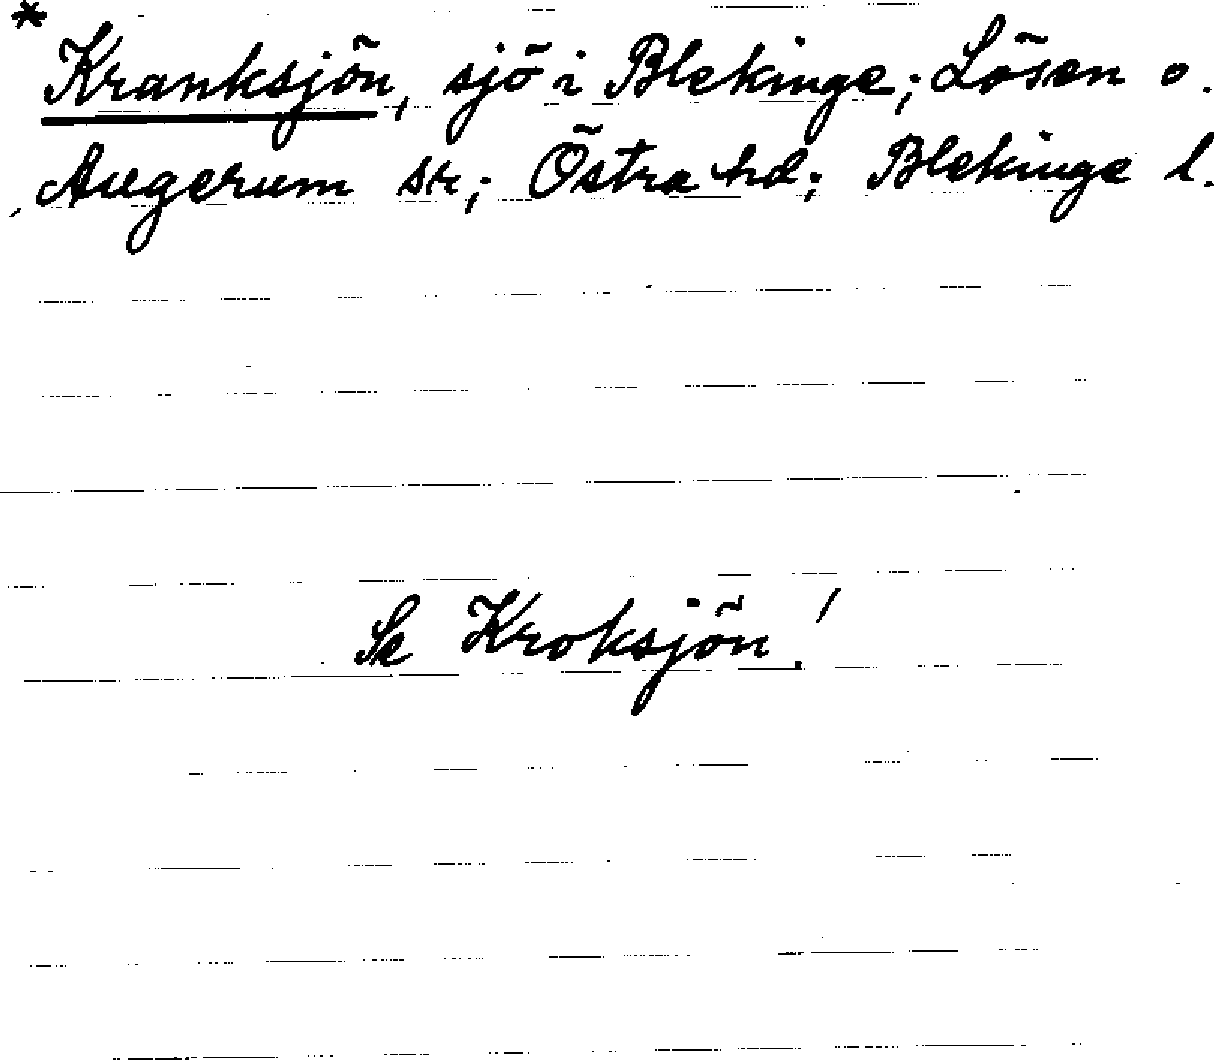 * Kranksjön, sjö i Blekinge; Lösen o.
Augerum sr; Östra hd; Blekinge l.
Se Kroksjön!